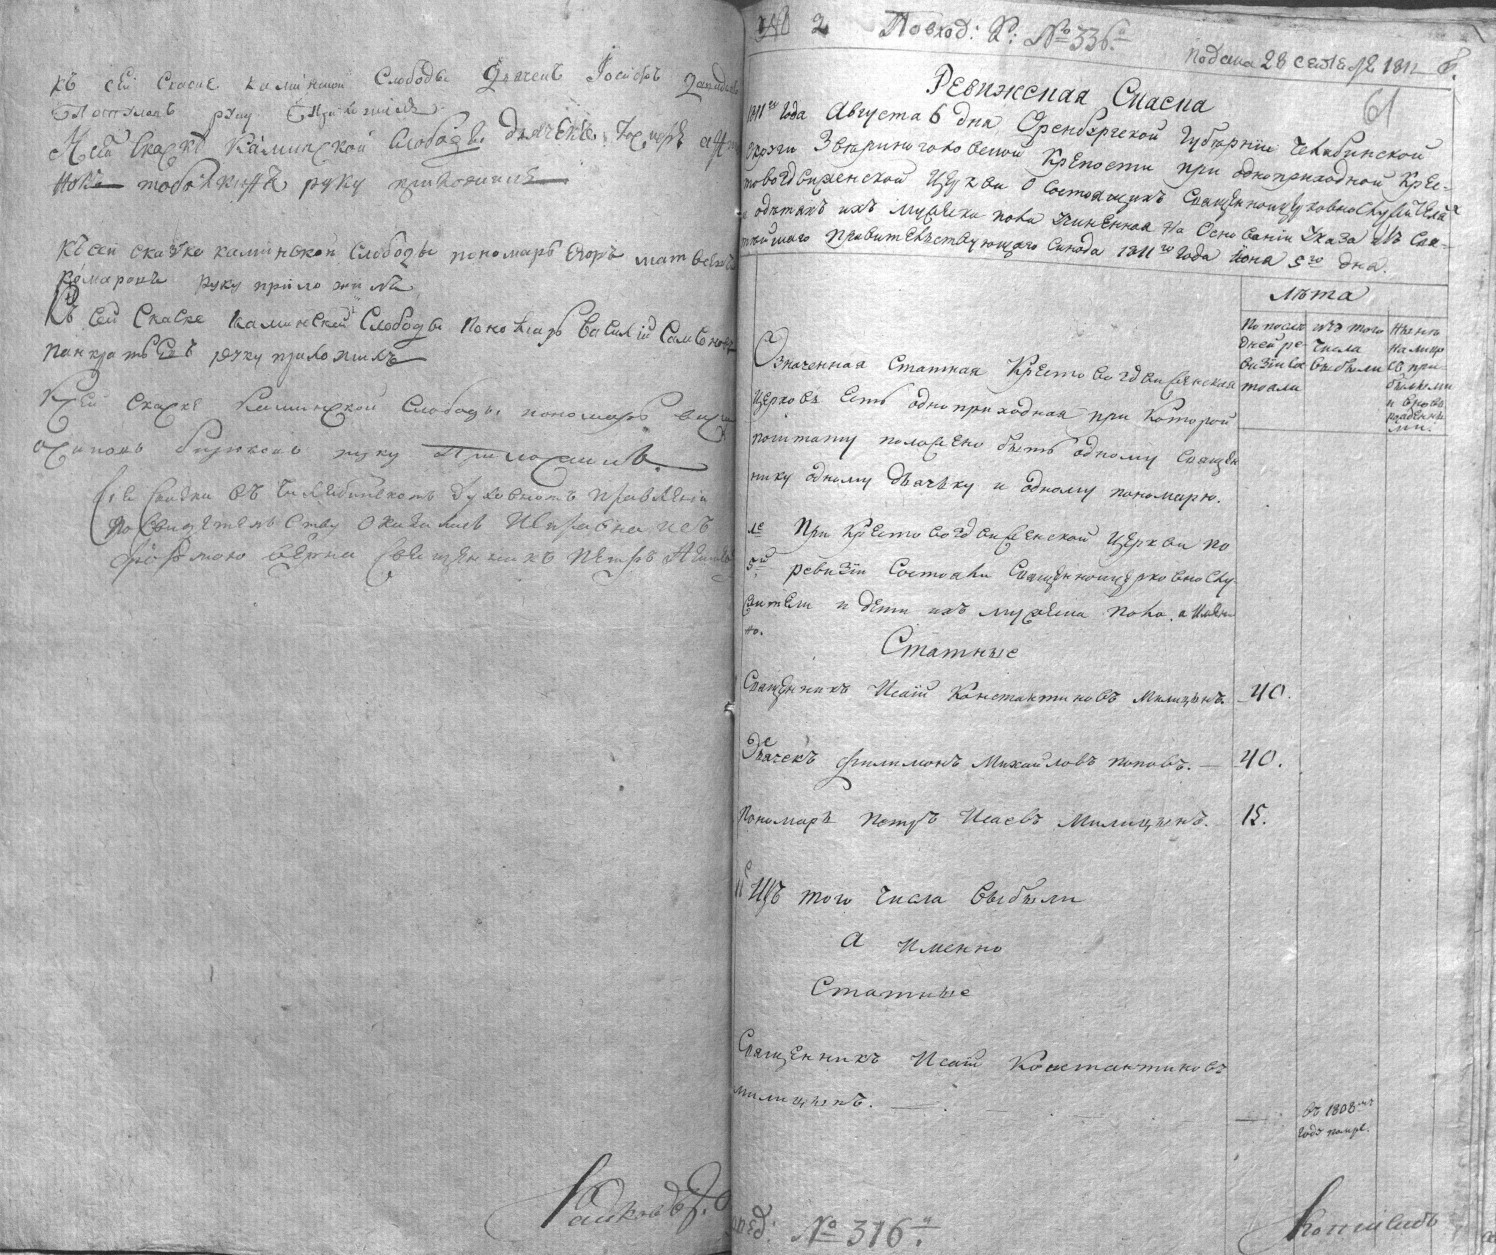 къ сей скаске каминской слободы дьячекъ Iосифъ
руку приложилъ
К сей скаскѣ Каминской слободы дьячекъ
руку приложилъ
къ сей скаске каминской слободы пономарь Егоръ матвеевъ
комаровъ руку приложилъ
Къ сей скаске Каминской слободы пономарь василiй
панкратьевъ руку приложилъ
К сей скаске Каминской слободы пономарь
руку приложилъ
Сiи скаски въ Челябинскомъ духовномъ правленiи
по свидетельству оказались исправна и съ
формою верна священникъ петръ
2 По вход: №: 336.
подана 28 сентября 1811 г.
61
Ревижская Скаска
1811го года Августа 6 дня Оренбургской Губернiи Челябинской
округи Звериноголовской крепости при одноприходной Крес-
товоздвиженской Церкви о состоящихъ священноцерковнослужителяхъ
и детяхъ ихъ мужеска пола учиненная на основанiи указа изъ свя-
тейшаго правительствующаго синода 1811го года iюня 5го дня.
лѣта
По после изъ того
дней ре- числа
визiи со выбыли
стояли
ныне
на лицо
съ при-
былыми
и вновь
рожденны
ми.
Означенная статная Крестовоздвиженская
Церковь есть одноприходная при которой
поштату положено быть одному священ
нику одному дьячьку и одному пономарю.
1е При Крестовоздвиженской церкви по
5й ревизiи состояли священноцерковнослу
жители и дети ихъ мужеска пола. а имян
но.
Статные
Священникъ Исаiй Константиновъ Милицынъ. 40.
Дьячекъ филимонъ Михайловъ поповъ. — 40.
Пономарь петръ Исаевъ Милицынъ. — 15.
Изъ того числа выбыли
а именно
Статные
Священникъ Исаiй Константиновъ
милицынъ. — въ 1808мъ
годе помре.
№ 316.